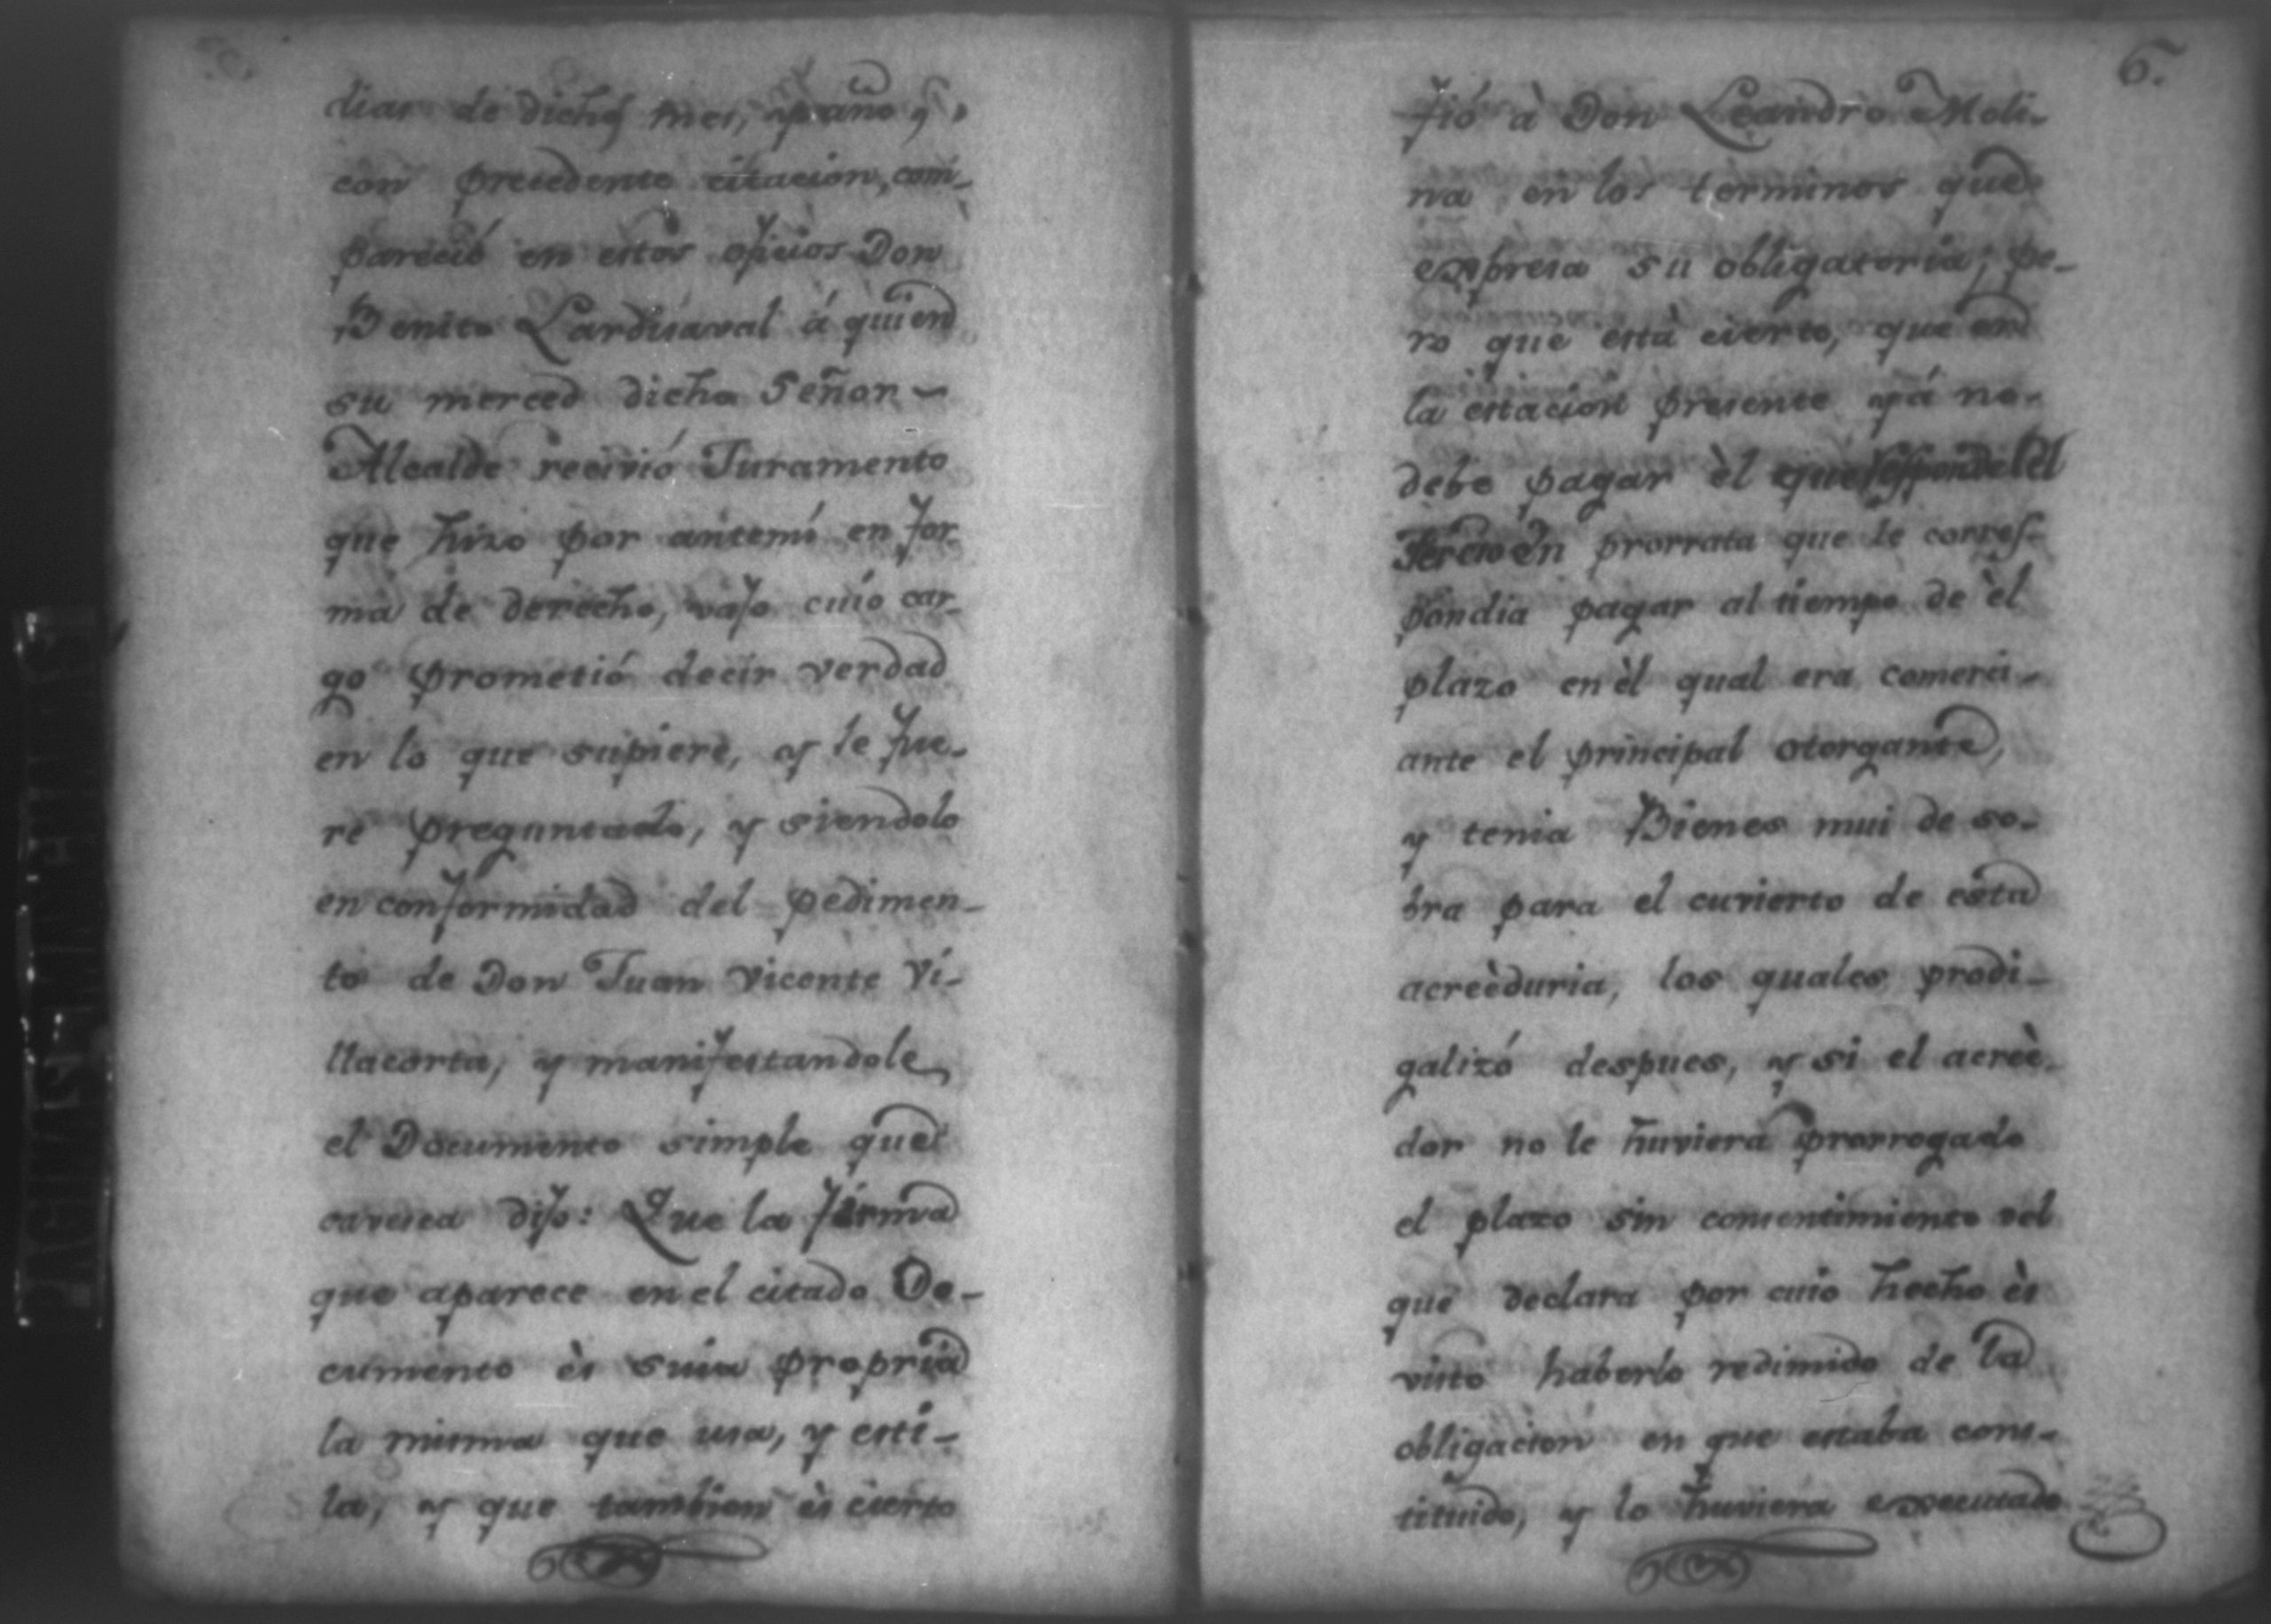 dias de dicho mes, y año,
con precedente citacion, com-
pareció en estos oficios Don
Benito Lardisaval á quien
su merced dicho Señor
Alcalde recivió Juramento
que hizo por antemí en for-
ma de derecho, vajo cuio car-
go prometió decir verdad
en lo que supiere, y le fue-
re preguntado, y siendolo
en conformidad del pedimen-
to de Don Juan Vicente Vi-
llacorta, y manifestandole
el Documento simple que
caveza dijo: Que la firma
que aparece en el citado Do-
cumento ès suia propria
la misma que usa, y esti-
la, y que tambien ès cierto
6.
fió à Don Leandro Moli-
na en los terminos que
expresa su obligatoria; pe-
ro que està cierto, que en
la estacion presente yá no
debe pagar èl que responde el
Tercio en prorrata que le corres-
pondia pagar al tiempo de èl
plazo en èl qual era comerci-
ante el principal otorgante,
y tenia Bienes mui de so-
bra para el cuvierto de esta
acreèduria, los quales prodi-
galizó despues, y si el acreè-
dor no le huviera prorrogado
el plazo sin consentimiento del
que declara por cuio hecho ès
visto haberlo redimido de la
obligacion en que estaba cons-
tituido, y lo huviera executado